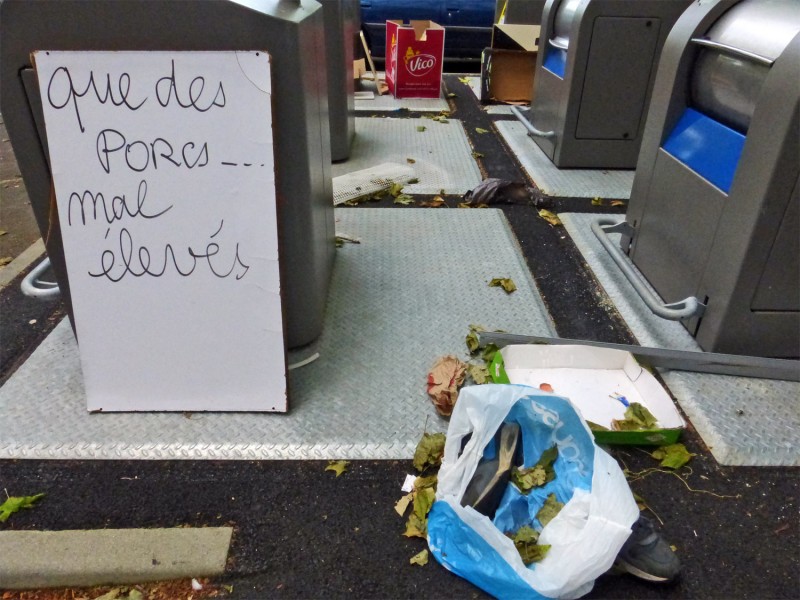 que des
PORCS_...
mal
élevés
Vico